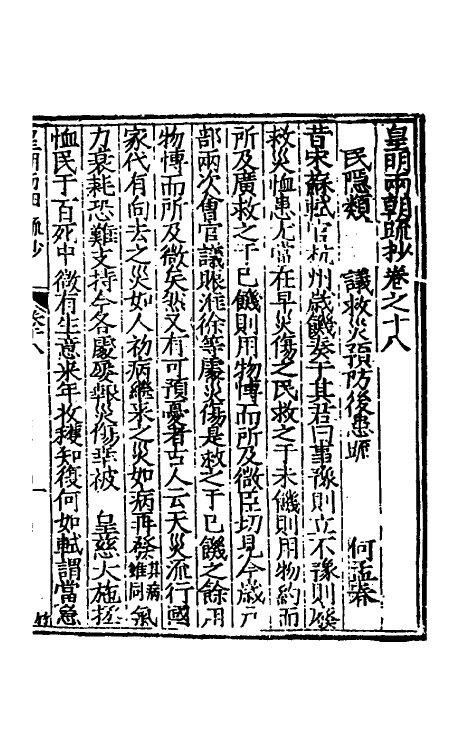 皇明兩朝疏抄卷之十八
民隱類　議救災預防後患疏　何孟春
昔宋蘇軾官杭州歲饑奏于其君曰事豫則立不豫則廢
救災恤患尤當在早災傷之民救之于未饑則用物約而
所及廣救之于已饑則用物博而所及微臣切見今歲戶
部兩次會官議賑淮徐等處災傷是救之于已饑之餘用
物博而所及微矣然又有可預憂者古人云天災流行國
家代有向去之災如人初病繼來之災如病再發其病雖同氣
力衰耗恐難支持今各處災傷幸被　皇慈大施拯
恤民于百死中徵有生意來年收穫知復何如軾謂當急